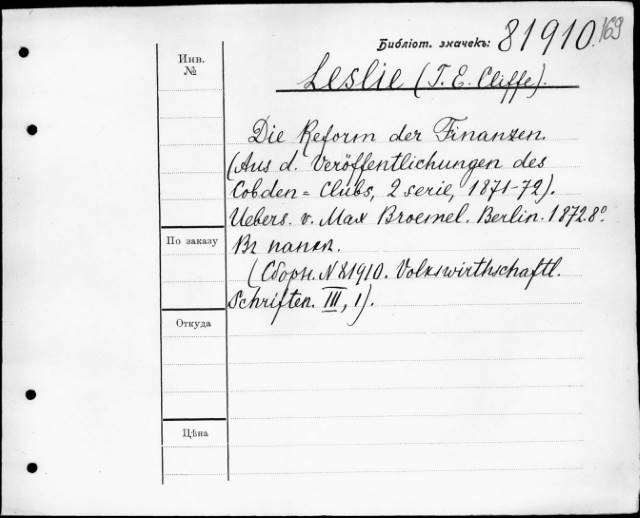 Библіот. значекъ: 81910. 169
Инв.
№
Leslie (T. E. Cliffe).
Die Reform der Finanzen.
(Aus d. Veröffentlichungen des
Cobden=Clubs, 2 serie, 1871-72).
Uebers. v. Max Broemel. Berlin. 1872. 8º
По заказу
Въ папкѣ.
(Сборн. N 81910. Volkswirthschaftl.
Schriften. III, 1).
Откуда
Цѣна